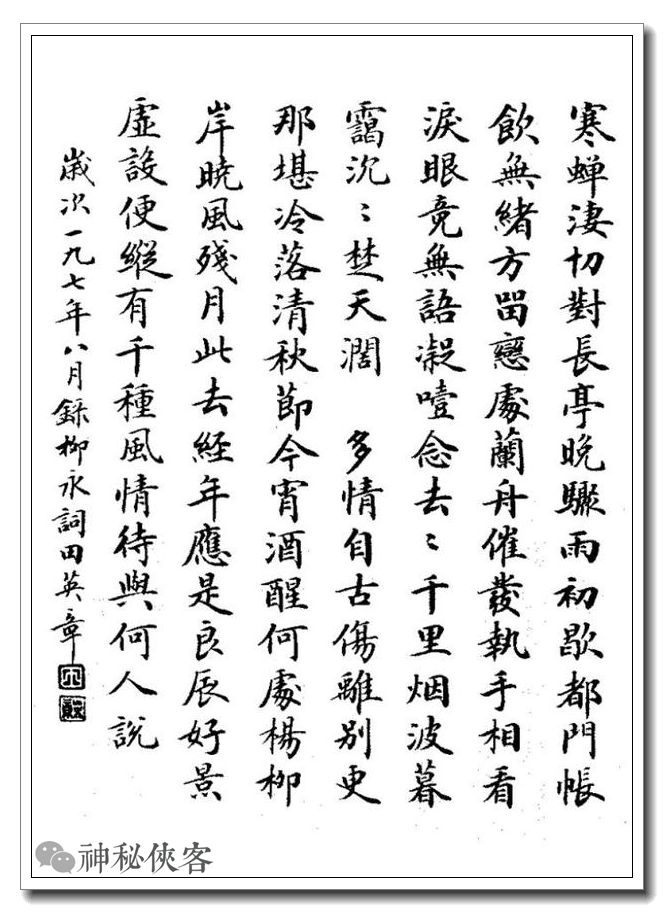 寒蝉淒切對長亭晚驟雨初歇都門帳
飲無緒方留戀處蘭舟催發執手相看
淚眼竟無語凝噎念去〻千里烟波暮
靄沉〻楚天濶 多情自古傷離別更
那堪冷落清秋節今宵酒醒何處楊柳
岸曉風殘月此去經年應是良辰好景
虛設便縱有千種風情待與何人說
歲次一九七年八月錄柳永詞田英章
神秘俠客